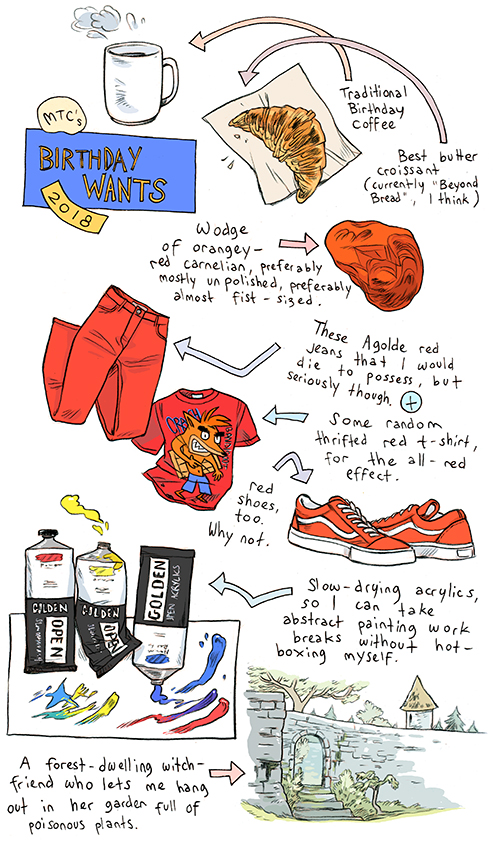 MTC's
BIRTHDAY
WANTS
2018
Traditional
Birthday
Coffee
Best butter
croissant
(currently "Beyond
Bread", I think)
Wodge
of orangey-
red carnelian, preferably
mostly unpolished, preferably
almost fist-sized.
These Agolde red
jeans that I would
die to possess, but
seriously though. +
Some random
thrifted red t-shirt,
for the all-red
effect.
CRASH
red
shoes,
too.
Why not.
GOLDEN
OPEN
GOLDEN
OPEN
GOLDEN
OPEN ACRYLICS
Slow-drying acrylics,
so I can take
abstract painting work
breaks without hot-
boxing myself.
A forest-dwelling witch-
friend who lets me hang
out in her garden full of
poisonous plants.